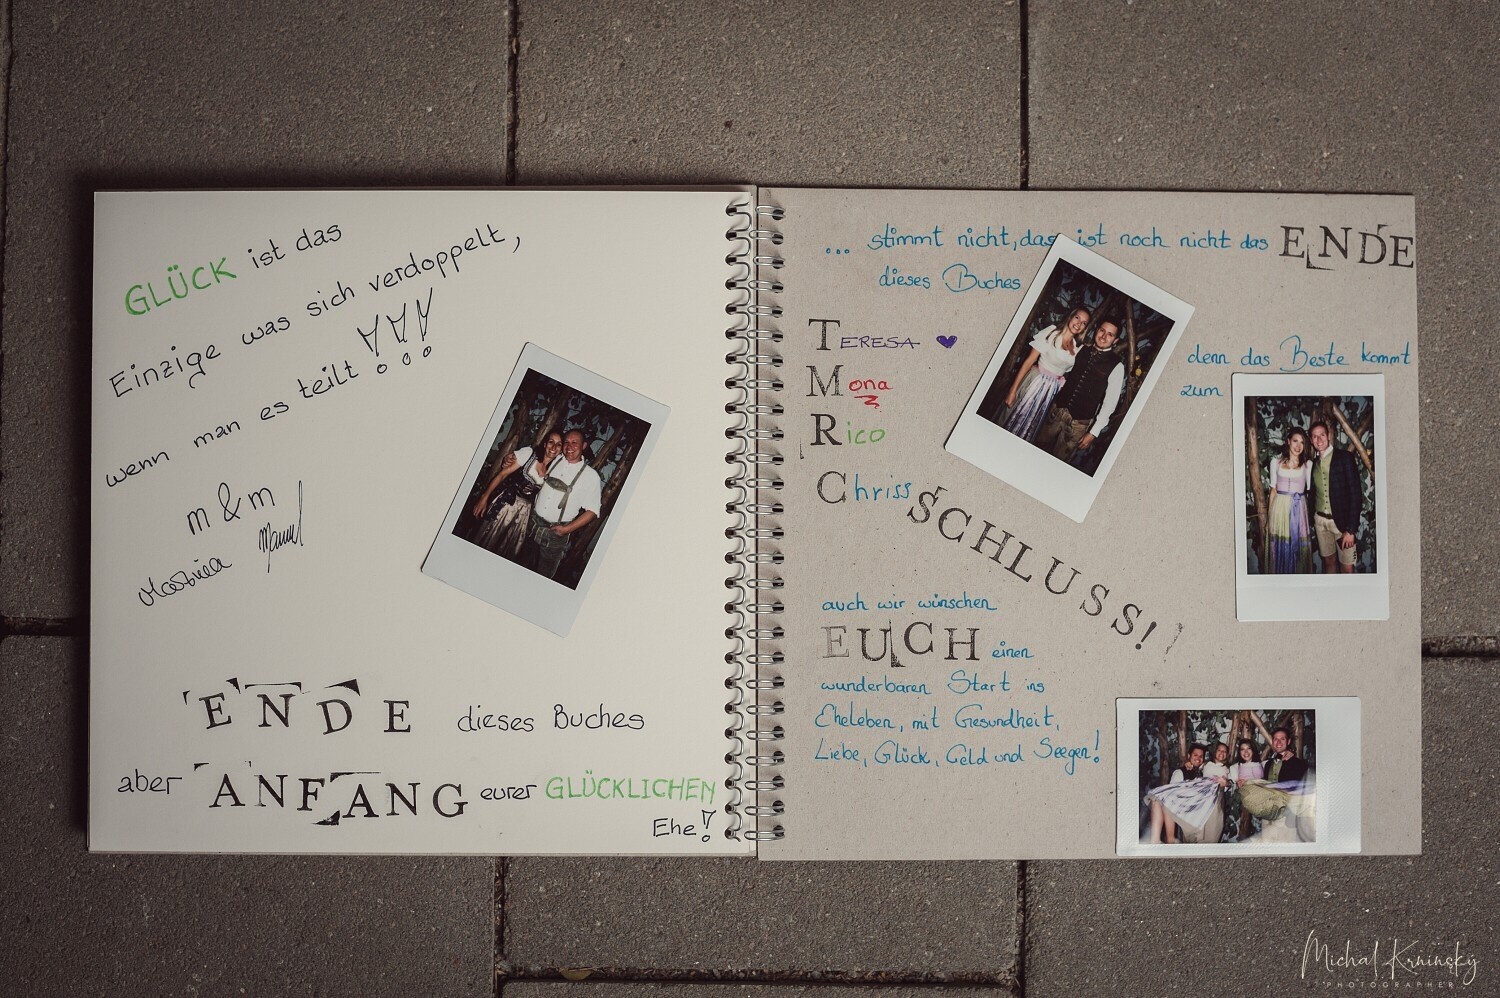 GLÜCK ist das
Einzige was sich verdoppelt,
wenn man es teilt !!!
m & m
Martina Manuel
ENDE dieses Buches
aber ANFANG eurer GLÜCKLICHEN
Ehe!
... stimmt nicht, das ist noch nicht das ENDE
dieses Buches
TERESA ♥
Mona
Rico
Chriss
denn das Beste kommt
zum
SCHLUSS!
auch wir wünschen
EUCH einen
wunderbaren Start ins
Eheleben, mit Gesundheit,
Liebe, Glück, Geld und Seegen!
Michal Krninský
PHOTOGRAPHER